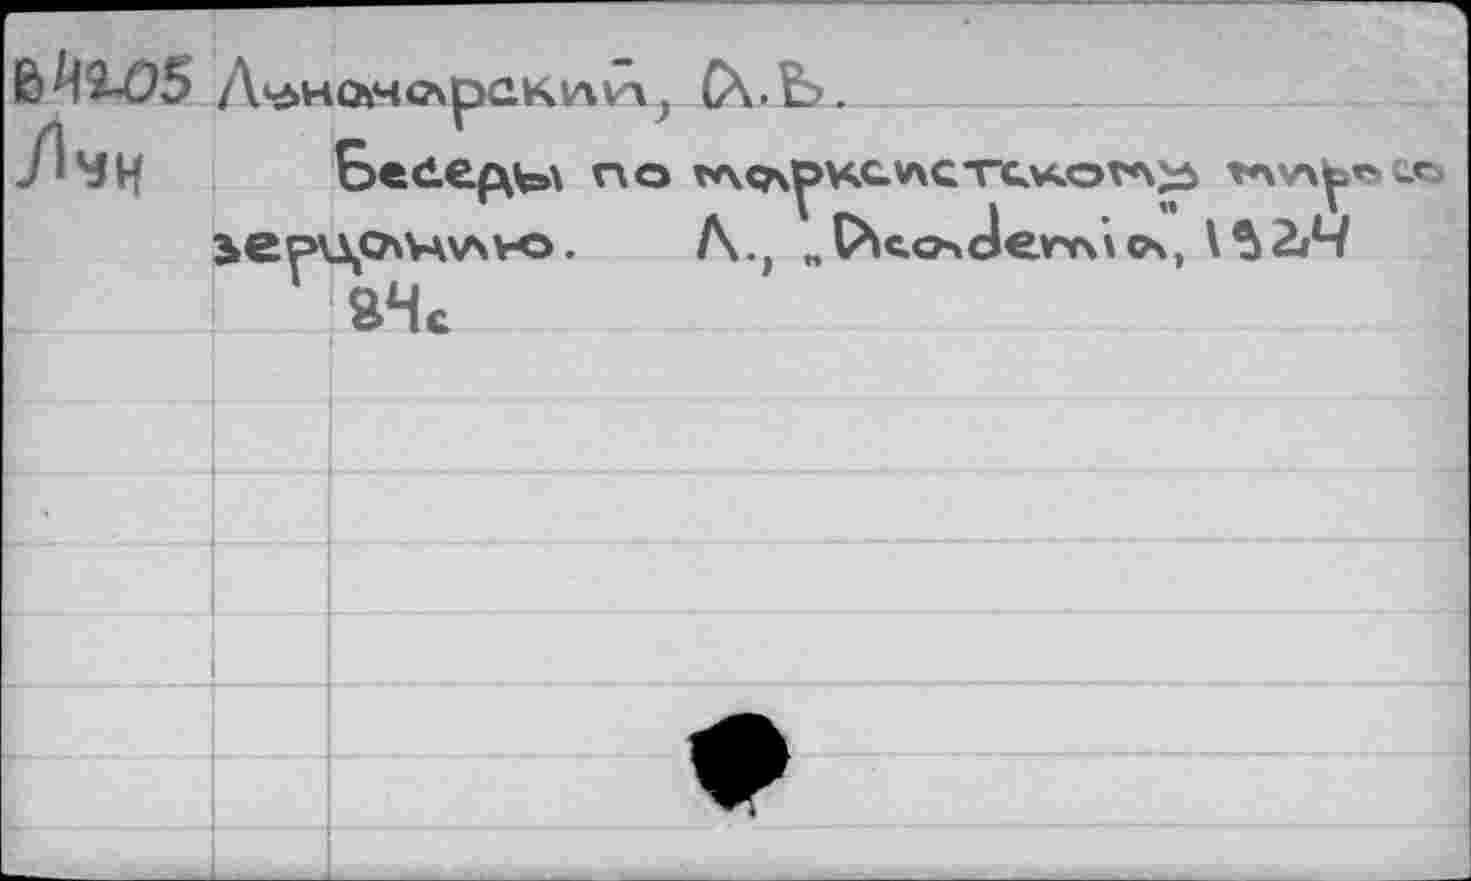 В492-05 Луначарский, А.В.
Лун Беседы по марксистскому миросо
зерцанию. Л., „Academia", 1924
84с